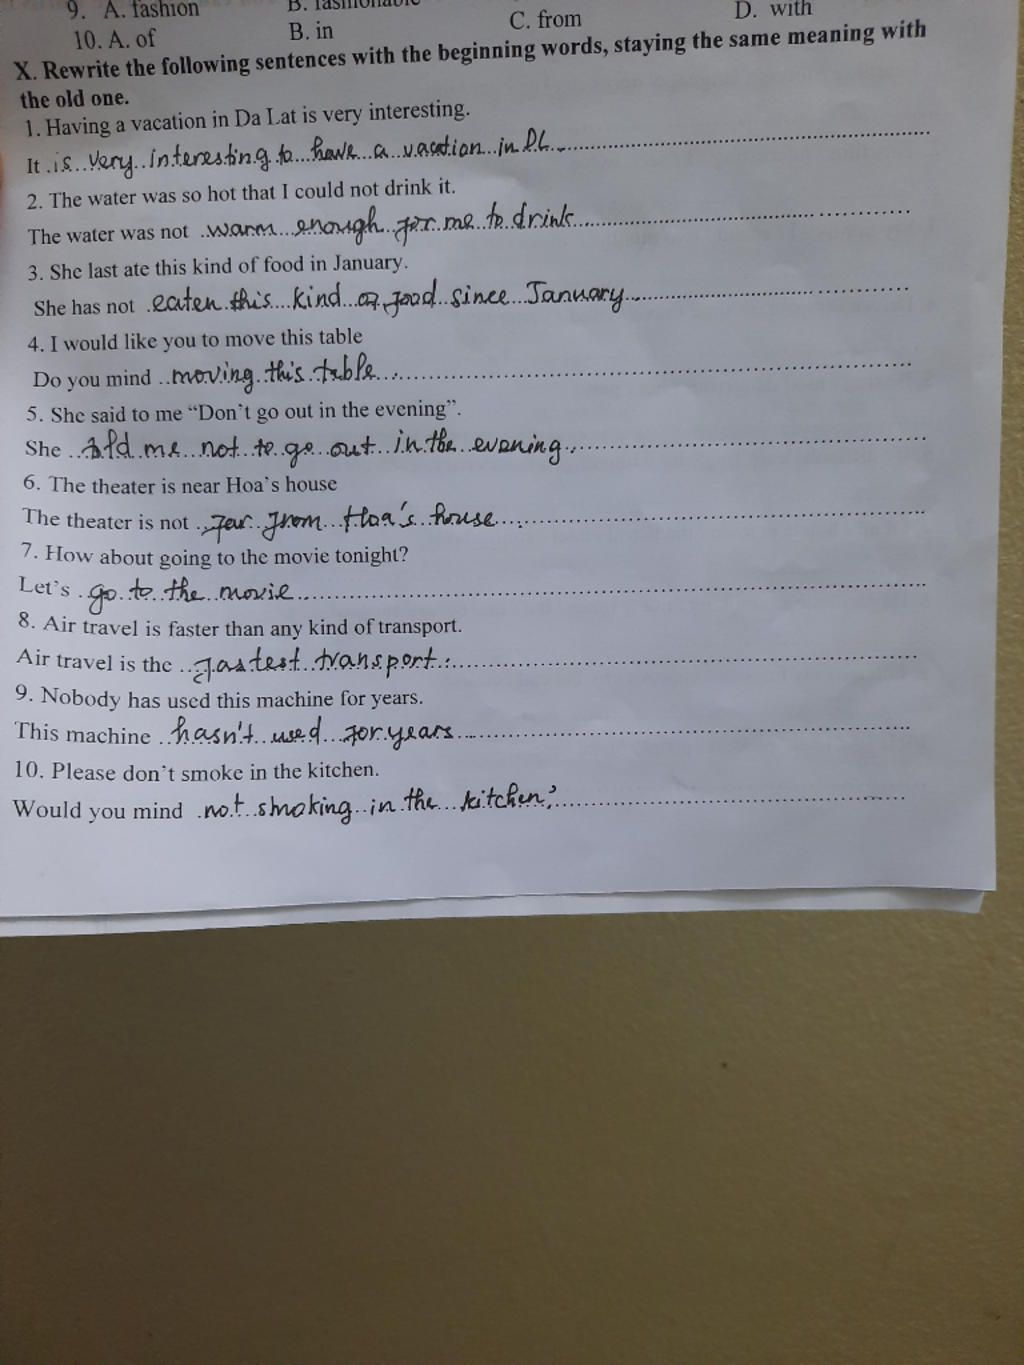 9. A. fashion B. fashionable
10. A. of B. in C. from D. with
X. Rewrite the following sentences with the beginning words, staying the same meaning with
the old one.
1. Having a vacation in Da Lat is very interesting.
It is very interesting to have a vacation in DL
2. The water was so hot that I could not drink it.
The water was not warm enough for me to drink
3. She last ate this kind of food in January.
She has not eaten this kind of food since January
4. I would like you to move this table
Do you mind moving this table
5. She said to me “Don’t go out in the evening”.
She told me not to go out in the evening
6. The theater is near Hoa’s house
The theater is not far from Hoa's house
7. How about going to the movie tonight?
Let’s go to the movie
8. Air travel is faster than any kind of transport.
Air travel is the fastest transport
9. Nobody has used this machine for years.
This machine hasn't used for years
10. Please don’t smoke in the kitchen.
Would you mind not smoking in the kitchen?